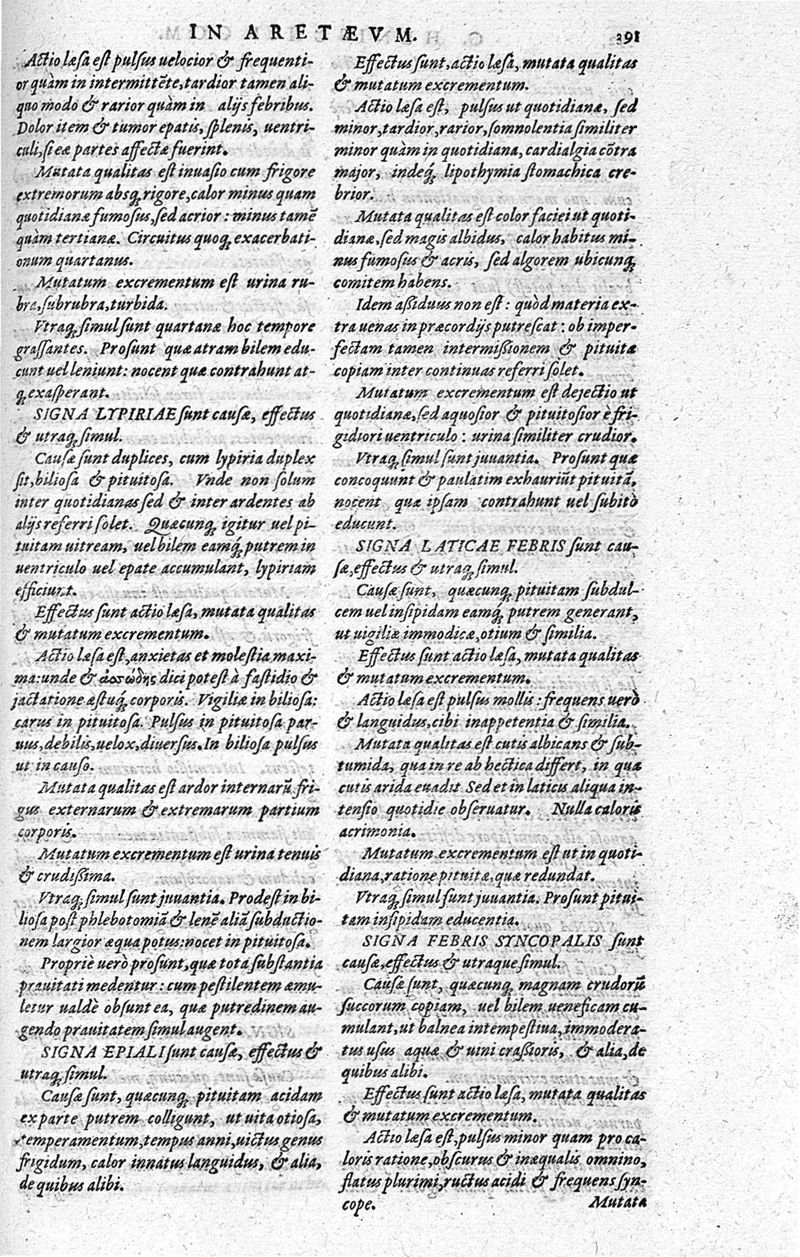 IN ARETÆVM.
391
Actio læsa est pulsus uelocior & frequenti-
or quàm in intermittẽte, tardior tamen ali-
quo modo & rarior quàm in alijs febribus.
Dolor item & tumor epatis, splenis, uentri-
culi, si eæ partes affectæ fuerint.
Mutata qualitas est inuasio cum frigore
extremorum absq; rigore, calor minus quam
quotidianæ fumosus, sed acrior: minus tamẽ
quàm tertianæ. Circuitus quoq; exacerbati-
onum quartanus.
Mutatum excrementum est urina ru-
bra, subrubra, turbida.
Vtraq; simul sunt quartanæ hoc tempore
grassantes. Prosunt quæ atram bilem edu-
cunt uel leniunt: nocent quæ contrahunt at-
q; exasperant.
SIGNA LYPIRIAE sunt causæ, effectus
& utraq; simul.
Causæ sunt duplices, cum lypiria duplex
sit, biliosa & pituitosa. Vnde non solum
inter quotidianas sed & inter ardentes ab
alijs referri solet. Quæcunq; igitur uel pi-
tuitam uitream, uel bilem eamq́; putrem in
uentriculo uel epate accumulant, lypiriam
efficiunt.
Effectus sunt actio læsa, mutata qualitas
& mutatum excrementum.
Actio læsa est, anxietas et molestia maxi-
ma: unde & ἀσώδης dici potest à fastidio &
jactatione æstuq́; corporis. Vigiliæ in biliosa:
carus in pituitosa. Pulsus in pituitosa par-
uus, debilis, uelox, diuersus. In biliosa pulsus
ut in causo.
Mutata qualitas est ardor internarũ fri-
gus externarum & extremarum partium
corporis.
Mutatum excrementum est urina tenuis
& crudissima.
Vtraq; simul sunt juuantia. Prodest in bi-
liosa post phlebotomiã & lenẽ aliã subductio-
nem largior æqua potus: nocet in pituitosa.
Propriè uerò prosunt, quæ tota substantia
prauitati medentur: cum pestilentem æmu-
letur ualdè obsunt ea, quæ putredinem au-
gendo prauitatem simul augent.
SIGNA EPIALI sunt causæ, effectus &
utraq; simul.
Causæ sunt, quæcunq; pituitam acidam
ex parte putrem colligunt, ut uita otiosa,
temperamentum, tempus anni, uictus genus
frigidum, calor innatus languidus, & alia,
de quibus alibi.
Effectus sunt, actio læsa, mutata qualitas
& mutatum excrementum.
Actio læsa est, pulsus ut quotidianæ, sed
minor, tardior, rarior, somnolentia similiter
minor quàm in quotidiana, cardialgia cõtra
major, indeq́; lipothymia stomachica cre-
brior.
Mutata qualitas est color faciei ut quoti-
dianæ, sed magis albidus, calor habitus mi-
nus fumosus & acris, sed algorem ubicunq;
comitem habens.
Idem assiduus non est: quòd materia ex-
tra uenas in præcordijs putrescat: ob imper-
fectam tamen intermissionem & pituitæ
copiam inter continuas referri solet.
Mutatum excrementum est dejectio ut
quotidianæ, sed aquosior & pituitosior è fri-
gidiori uentriculo: urina similiter crudior.
Vtraq; simul sunt juuantia. Prosunt quæ
concoquunt & paulatim exhauriũt pituitã,
nocent quæ ipsam contrahunt uel subitò
educunt.
SIGNA LATICAE FEBRIS sunt cau-
sæ, effectus & utraq; simul.
Causæ sunt, quæcunq; pituitam subdul-
cem uel insipidam eamq́; putrem generant,
ut uigiliæ immodicæ, otium & similia.
Effectus sunt actio læsa, mutata qualitas
& mutatum excrementum.
Actio læsa est pulsus mollis: frequens uerò
& languidus, cibi inappetentia & similia.
Mutata qualitas est cutis albicans & sub-
tumida, qua in re ab hectica differt, in qua
cutis arida euadit. Sed et in laticis aliqua in-
tensio quotidie obseruatur. Nulla caloris
acrimonia.
Mutatum excrementum est ut in quoti-
diana, ratione pituitæ, quæ redundat.
Vtraq; simul sunt juuantia. Prosunt pitui-
tam insipidam educentia.
SIGNA FEBRIS SYNCOPALIS sunt
causæ, effectus & utraque simul.
Causæ sunt, quæcunq; magnam crudorũ
succorum copiam, uel bilem ueneficam cu-
mulant, ut balnea intempestiua, immodera-
tus usus aquæ & uini crassioris, & alia, de
quibus alibi.
Effectus sunt actio læsa, mutata qualitas
& mutatum excrementum.
Actio læsa est, pulsus minor quam pro ca-
loris ratione, obscurus & inæqualis omnino,
flatus plurimi, ructus acidi & frequens syn-
cope.
Mutata